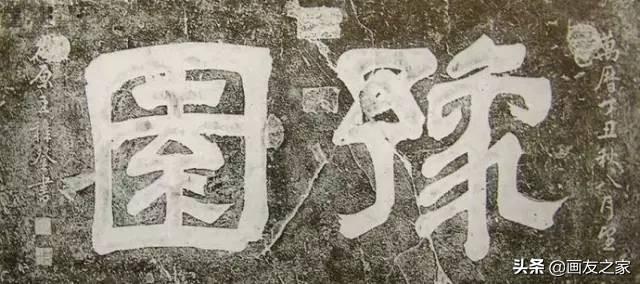 萬曆丁丑秋八月望
豫園
太原王穉登書
头条@画友之家